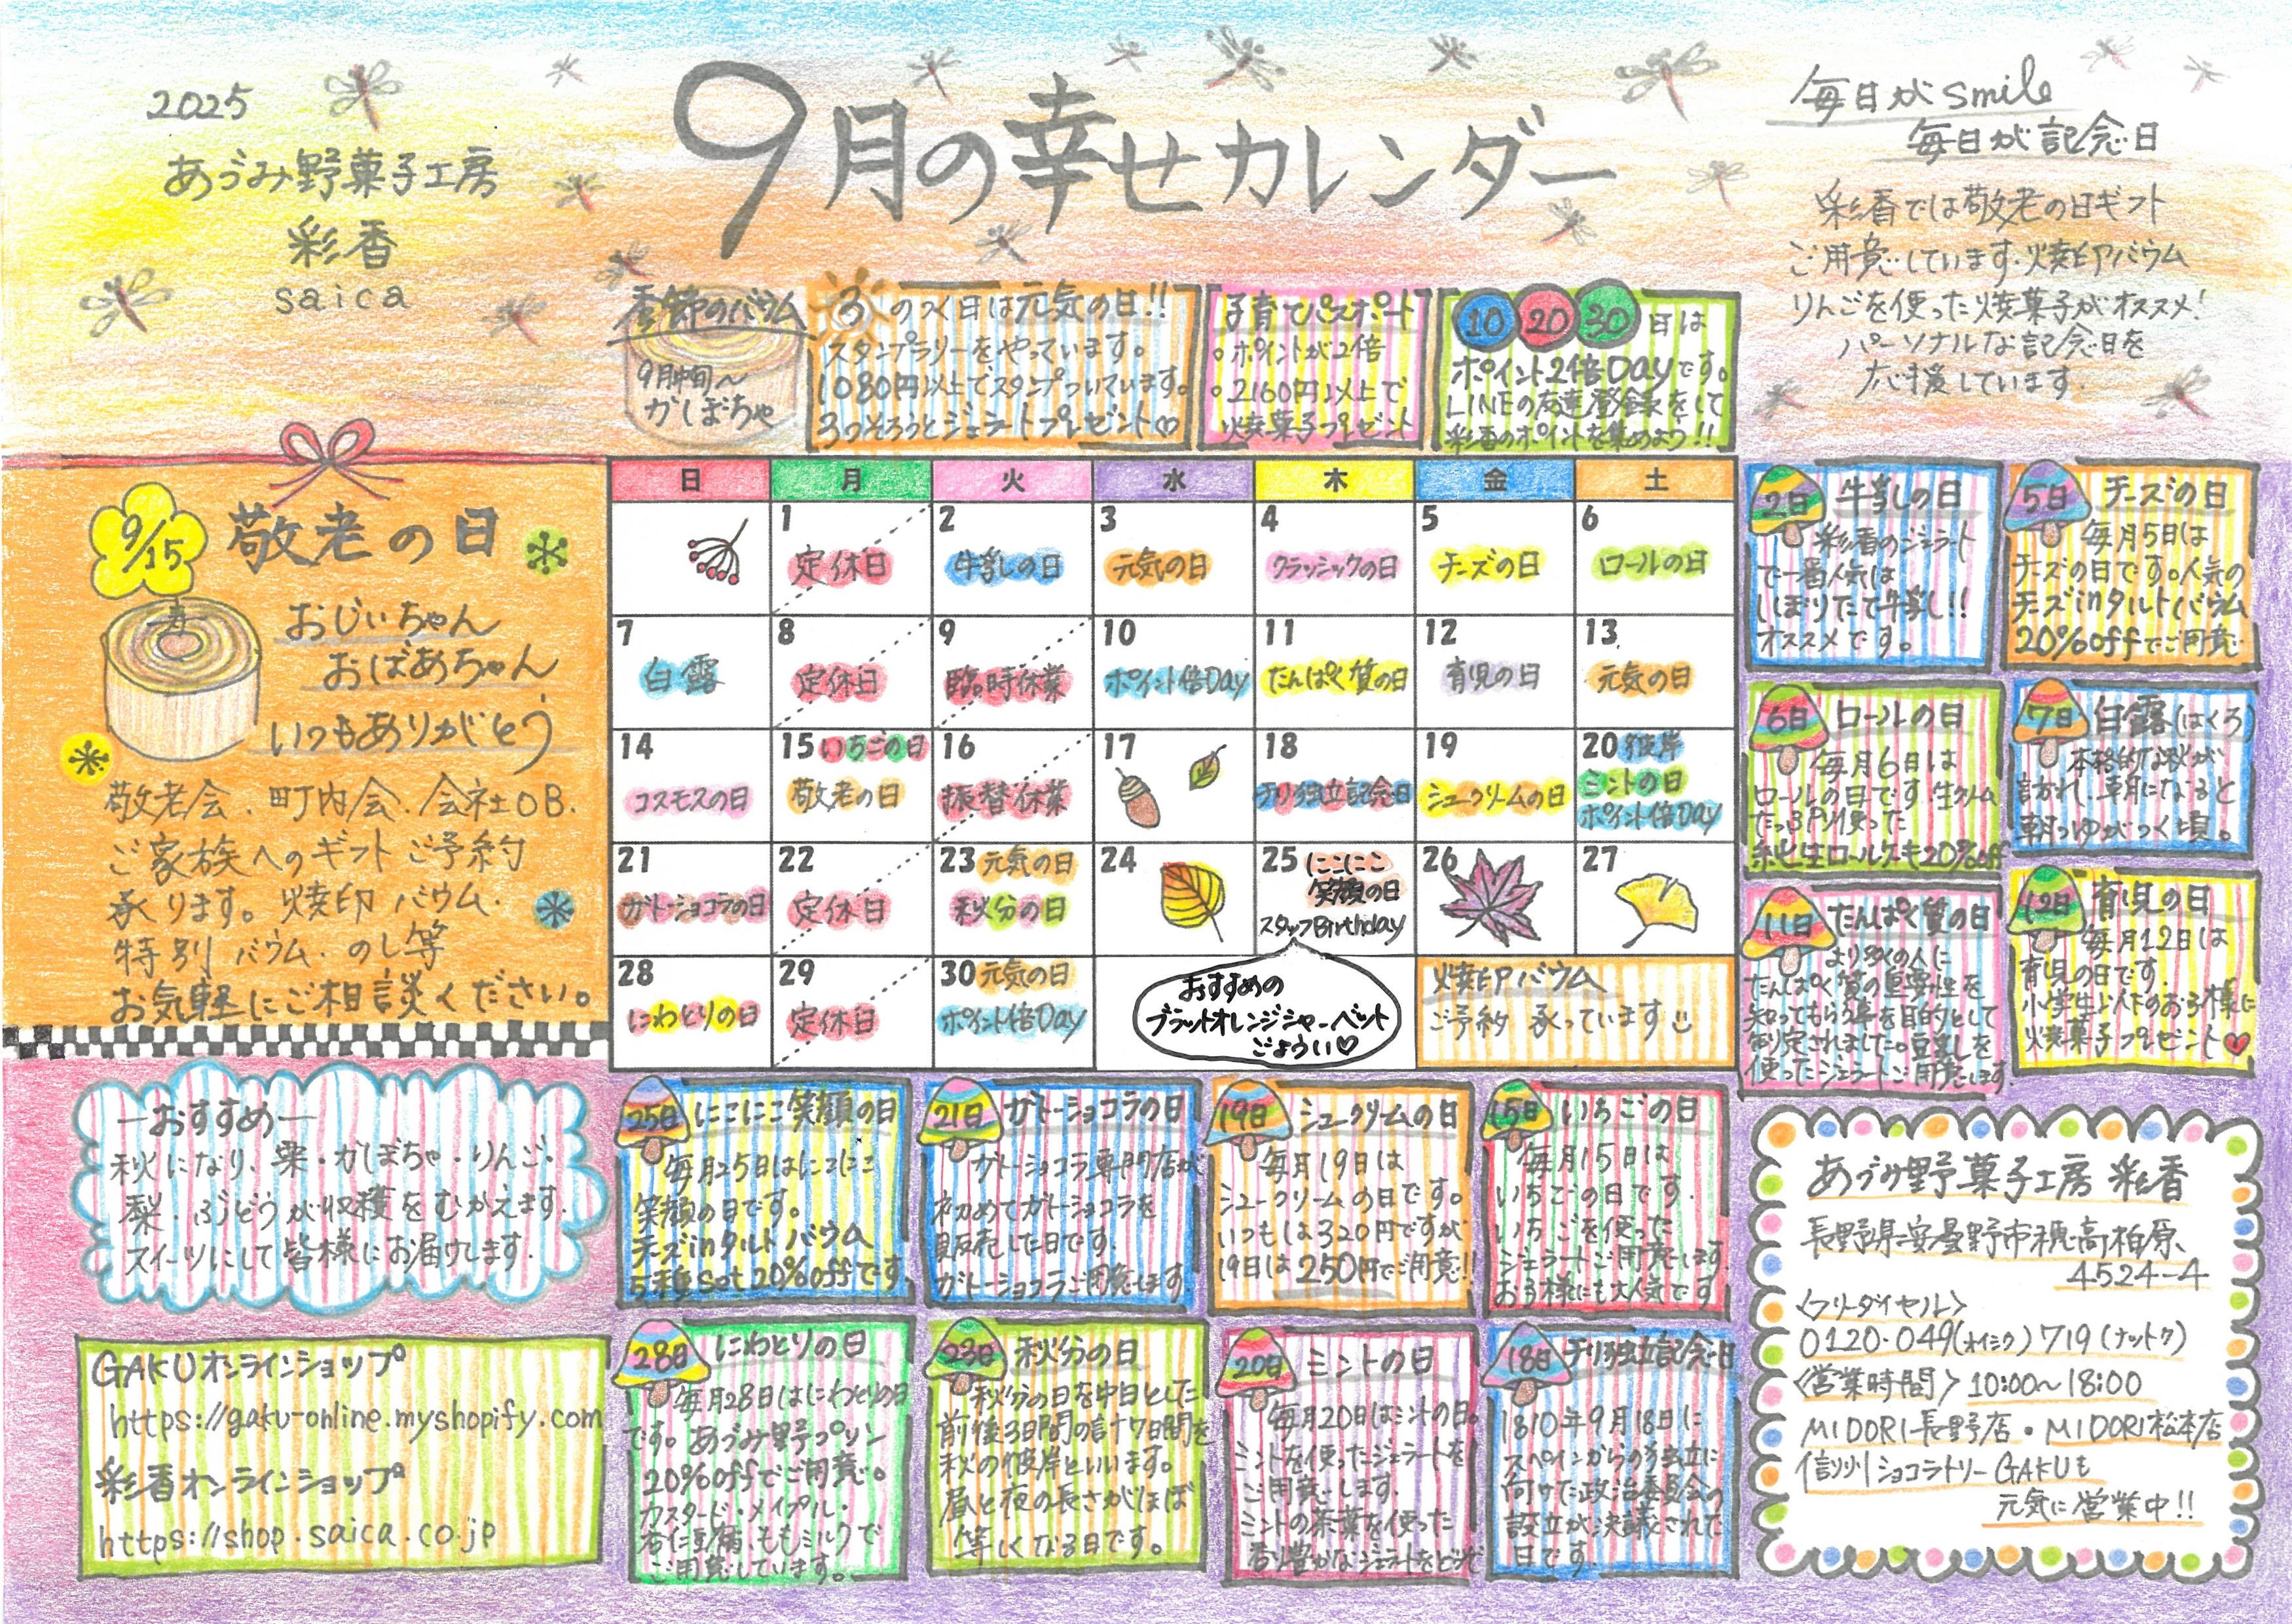 2025
あづみ野菓子工房
彩香
saica
9月の幸せカレンダー
毎日がsmile
毎日が記念日
彩香では敬老の日ギフト
ご用意しています。焼印バウム
りんごを使った焼菓子がオススメ!
パーソナルな記念日を
応援しています。
季節のバウム
9月中旬〜
かぼちゃ
3のつく日は元気の日!!
スタンプラリーをやっています。
1080円以上でスタンプついています。
3つそろうとジェラートプレゼント♡
子育てパスポート
○ポイントが2倍
○2160円以上で
焼菓子プレゼント
10 20 30日は
ポイント2倍Dayです。
LINEの友達登録をして
彩香のポイントを集めよう!!
9/15 敬老の日
寿
おじぃちゃん
おばあちゃん
いつもありがとう
敬老会、町内会、会社OB、
ご家族へのギフトご予約
承ります。焼印バウム、
特別バウム、のし等
お気軽にご相談ください。
日 月 火 水 木 金 土
1 2 3 4 5 6
定休日 牛乳の日 元気の日 クラッシックの日 チーズの日 ロールの日
7 8 9 10 11 12 13
白露 定休日 臨時休業 ポイント倍Day たんぱく質の日 育児の日 元気の日
14 15 いちごの日 16 17 18 19 20 彼岸
コスモスの日 敬老の日 振替休業 チリ独立記念日 シュークリームの日 ミントの日
ポイント倍Day
21 22 23 元気の日 24 25 にこにこ 26 27
笑顔の日
ガトーショコラの日 定休日 秋分の日 スタッフBirthday
28 29 30 元気の日
にわとりの日 定休日 ポイント倍Day
おすすめの
ブラットオレンジシャーベット
ごょうい♡
焼印バウム
ご予約承っています
2日 牛乳の日
彩香のジェラート
で一番人気は
しぼりたて牛乳!!
オススメです。
5日 チーズの日
毎月5日は
チーズの日です。人気の
チーズinタルトバウム
20%offでご用意
6日 ロールの日
毎月6日は
ロールの日です。生クリーム
たっぷり使った
生ロールケーキ20%off
7日 白露(はくろ)
本格的な秋が
訪れ、朝になると
朝つゆがつく頃。
11日 たんぱく質の日
より多くの人に
たんぱく質の重要性を
知ってもらう事を目的として
制定されました。豆乳を
使ったジェラートご用意します。
12日 育児の日
毎月12日は
育児の日です。
小学生以下のお子様に
焼菓子プレゼント
―おすすめ―
秋になり、栗・かぼちゃ・りんご・
梨・ぶどうが収穫をむかえます。
スイーツにして皆様にお届けします。
GAKUオンラインショップ
https://gaku-online.myshopify.com
彩香オンラインショップ
https://shop.saica.co.jp
25日 にこにこ笑顔の日
毎月25日はにこにこ
笑顔の日です。
チーズinタルトバウム
5種set 20%offです
21日 ガトーショコラの日
ガトーショコラ専門店が
初めてガトーショコラを
販売した日です。
ガトーショコラご用意します。
19日 シュークリームの日
毎月19日は
シュークリームの日です。
いつもは320円ですが
19日は250円でご用意!!
15日 いちごの日
毎月15日は
いちごの日です。
いちごを使った
ジェラートご用意します。
お子様にも大人気です
28日 にわとりの日
毎月28日はにわとりの日
です。あづみ野プリン
20%offでご用意。
カスタード・メイプル・
杏仁豆腐、ももミルクで
ご用意しています。
23日 秋分の日
秋分の日を中日とした
前後3日間の計7日間を
秋の彼岸といいます。
昼と夜の長さがほぼ
等しくなる日です。
20日 ミントの日
毎月20日はミントの日。
ミントを使ったジェラートを
ご用意します。
ミントの茶葉を使った
香り豊かなジェラートをどうぞ
18日 チリ独立記念日
1810年9月18日に
スペインからの独立に
向けた政治委員会の
設立が決議されて
日です。
あづみ野菓子工房 彩香
長野県安曇野市穂高柏原
4524-4
<フリーダイヤル>
0120・049(オイシク)719(ナットク)
<営業時間> 10:00〜18:00
MIDORI長野店・MIDORI松本店
信州ショコラトリーGAKUも
元気に営業中!!